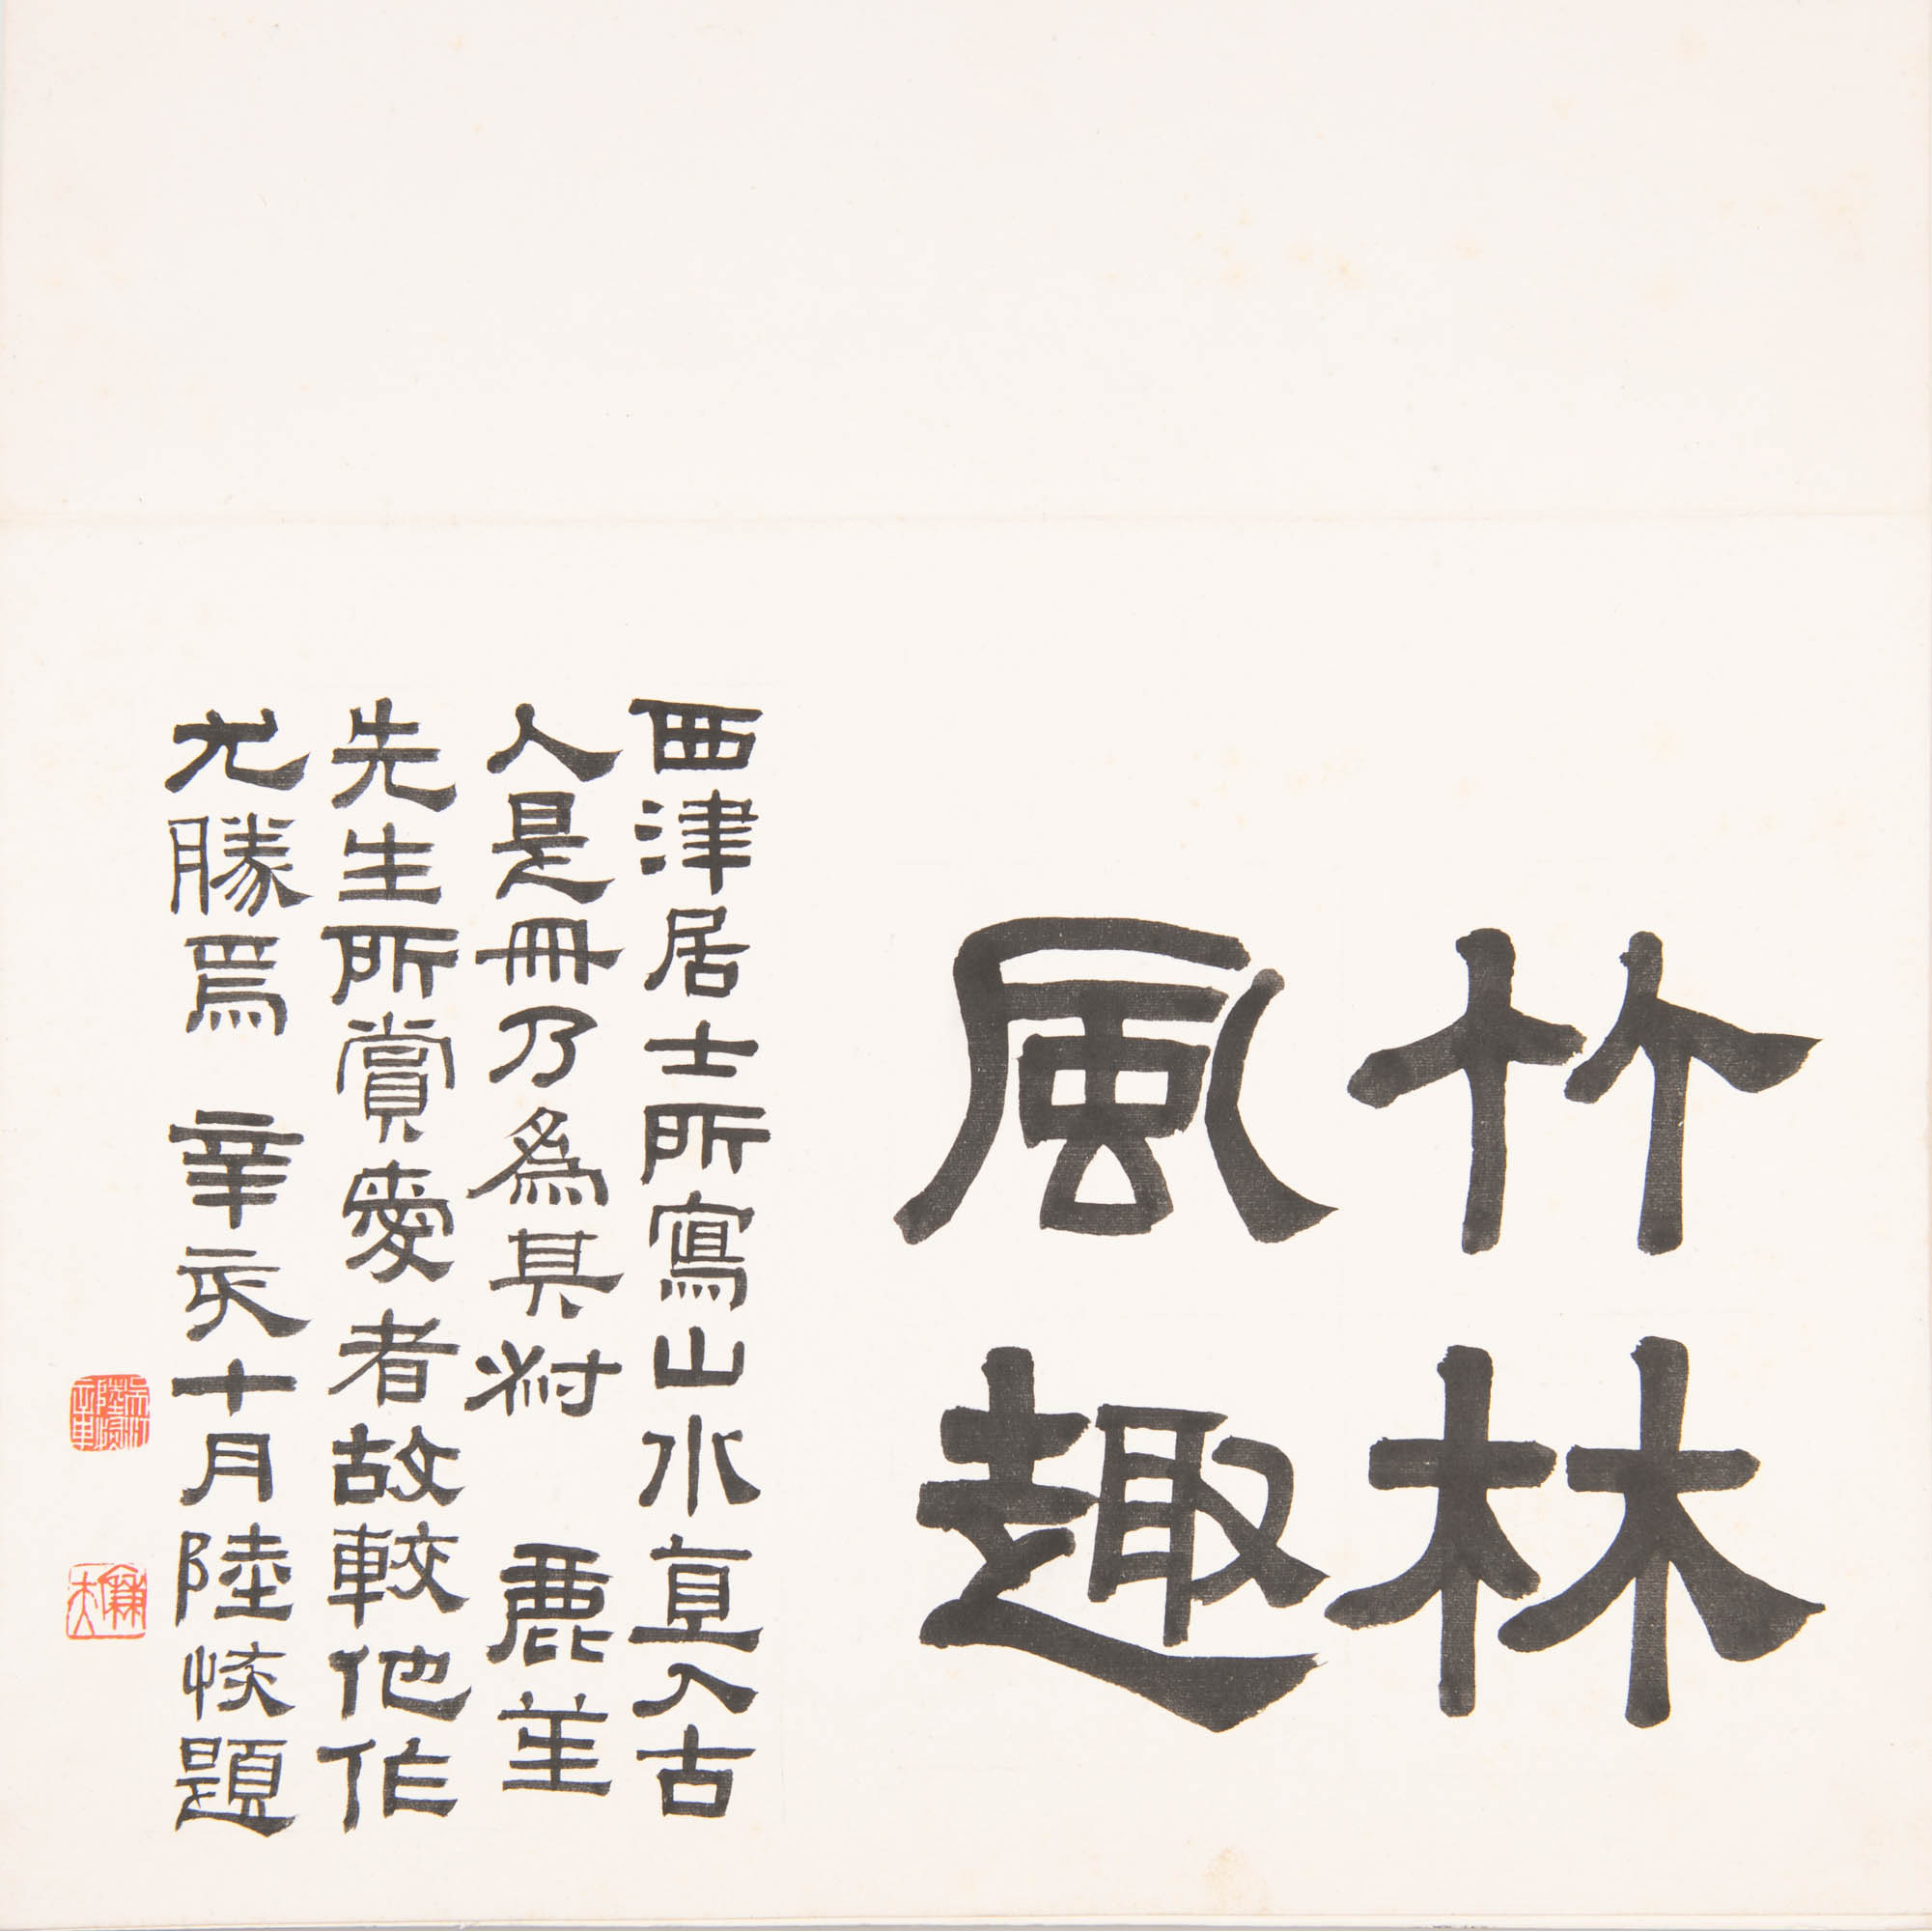 竹林
風趣
西津居士所寫山水直入古
人是冊乃為其叔 鹿笙
先生所賞愛者故較他作
尤勝焉 辛亥十月陸恢題
廉夫